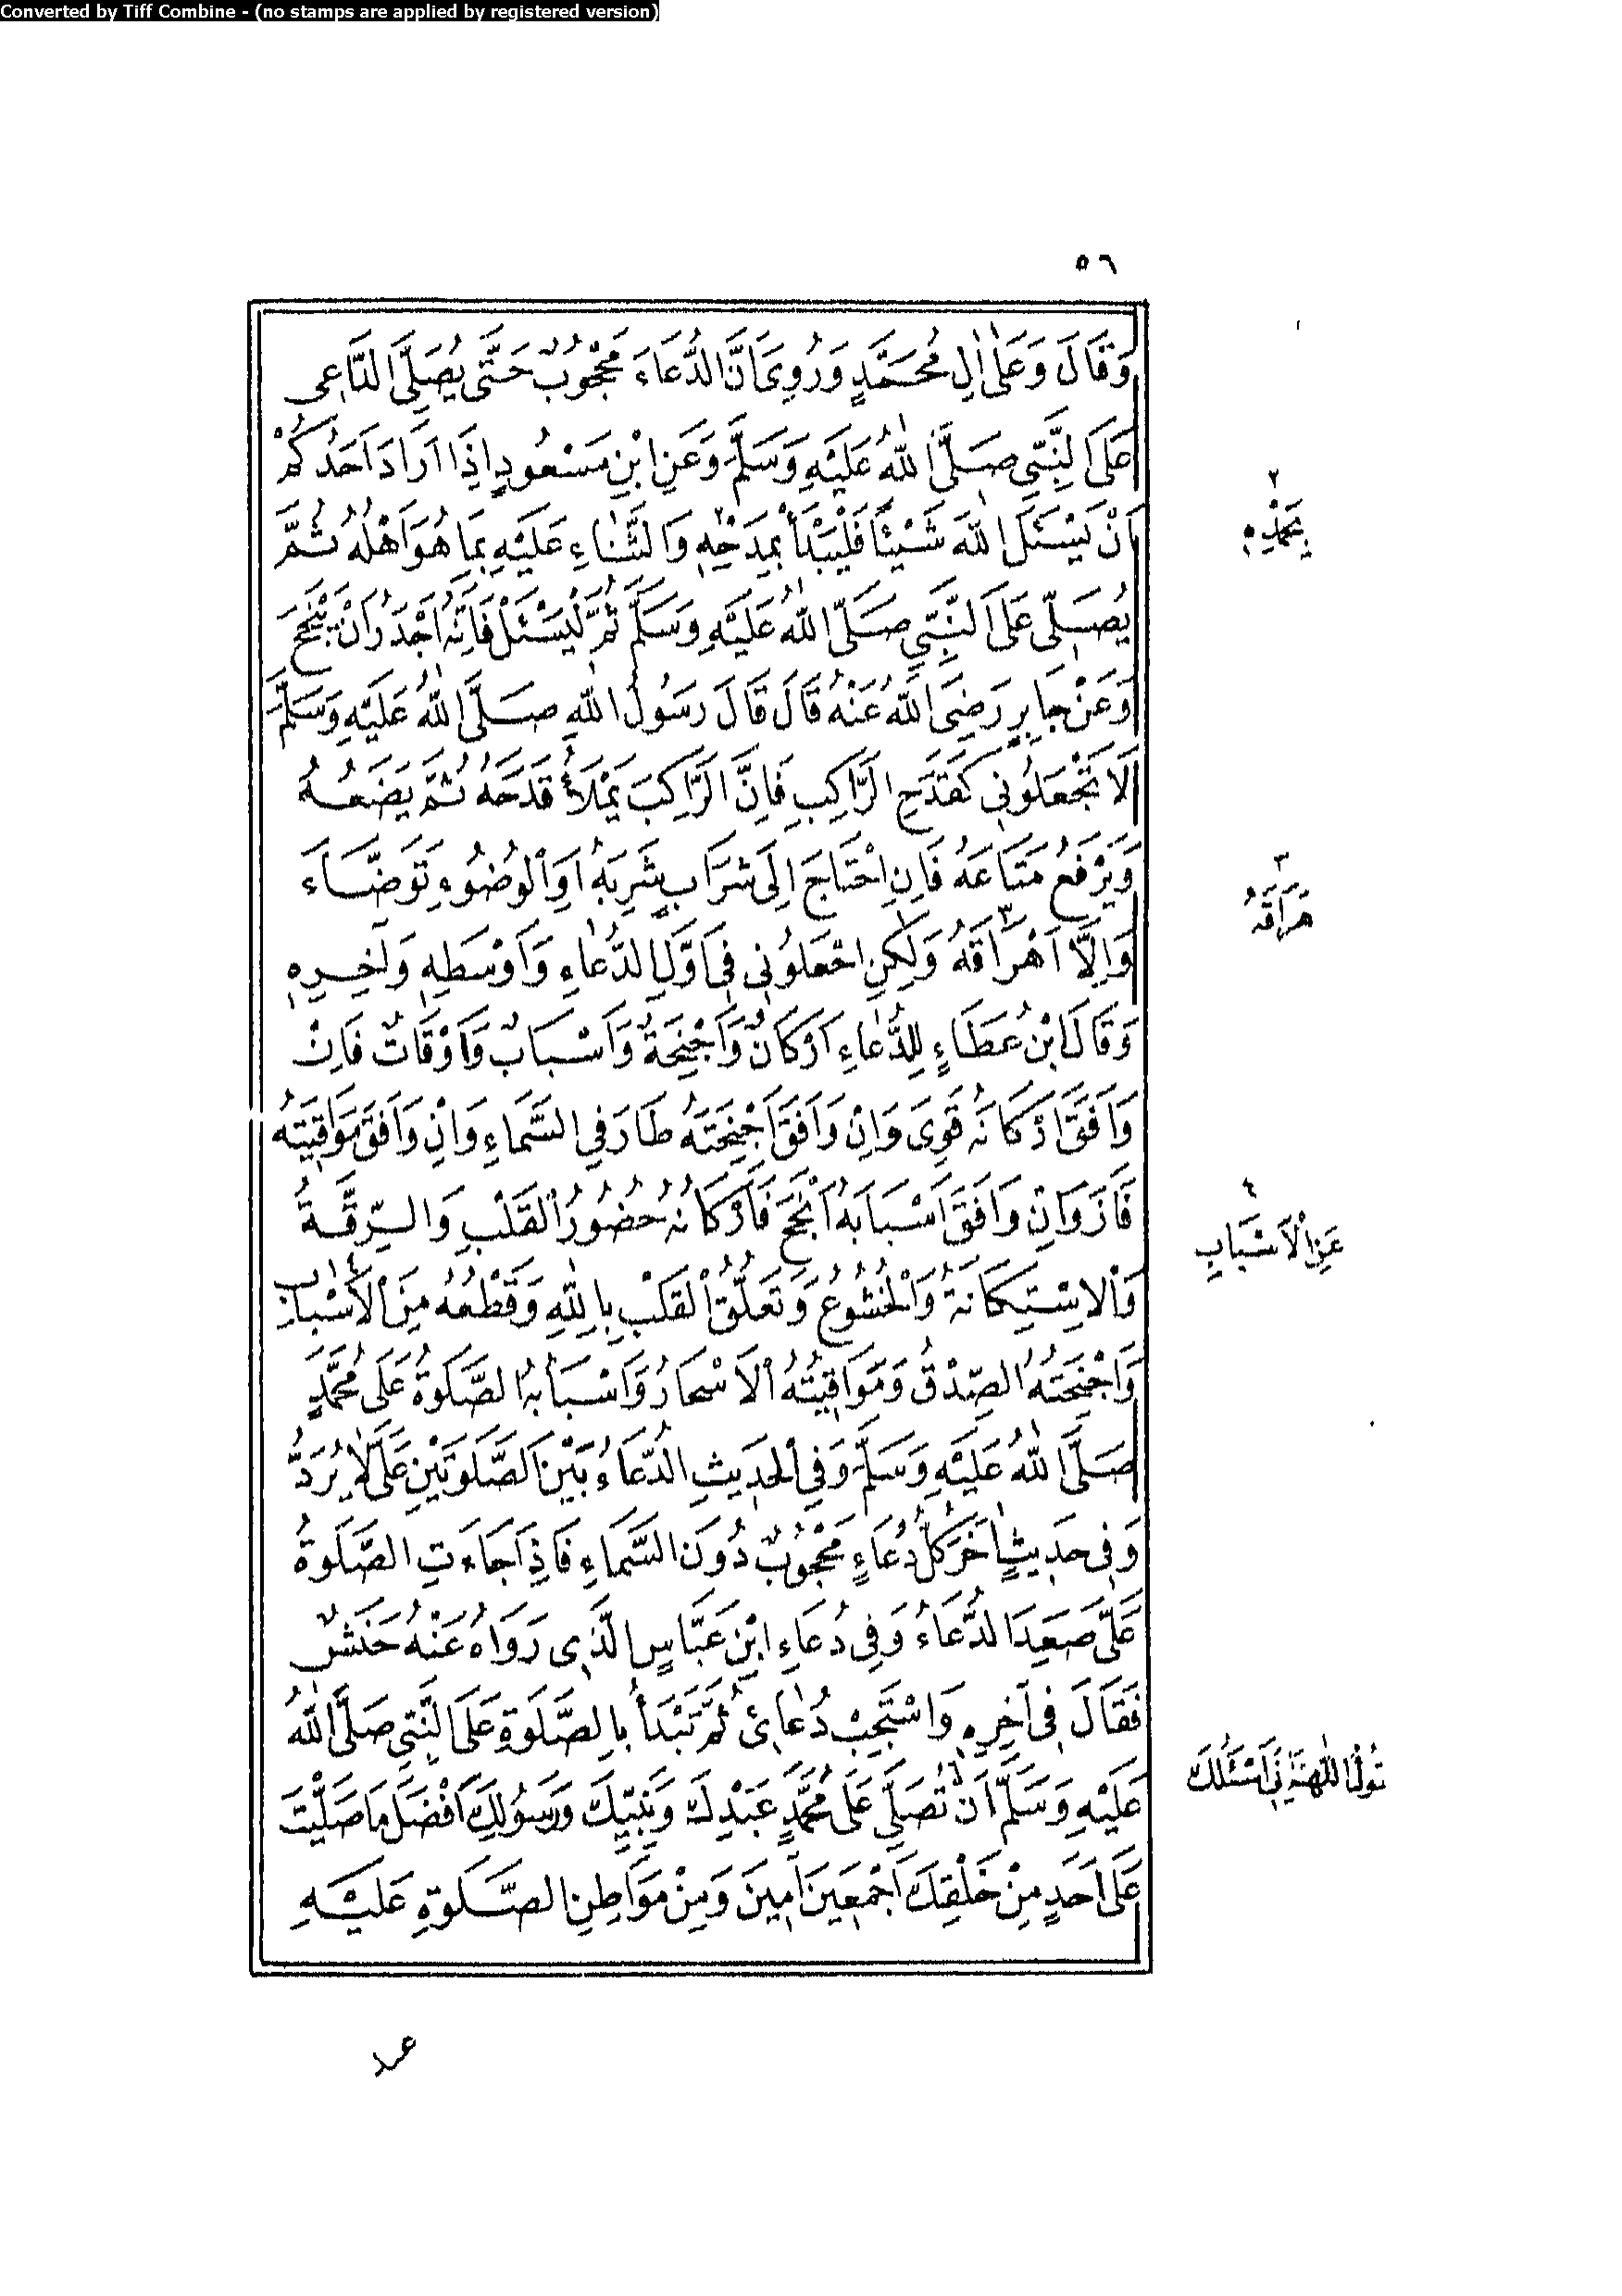 Converted by Tiff Combine - (no stamps are applied by registered version)
٥٦
وَقَالَ وَعَلٰى اٰلِ مُحَمَّدٍ وَرُوِىَ اَنَّ الدُّعَاءَ مَحْجُوبٌ حَتّٰى يُصَلِّىَ الدَّاعِى
عَلَى النَّبِيِّ صَلَّى اللّٰهُ عَلَيْهِ وَسَلَّمَ وَعَنِ ابْنِ مَسْعُودٍ اِذَا اَرَادَ اَحَدُكُمْ
اَنْ يَسْئَلَ اللّٰهَ شَيْئًا فَلْيَبْدَأْ بِمَدْحِهِ٢ وَالثَّنَاءِ عَلَيْهِ بِمَا هُوَ اَهْلُهُ ثُمَّ
بِحَمْدِهِ ٢
يُصَلِّى عَلَى النَّبِيِّ صَلَّى اللّٰهُ عَلَيْهِ وَسَلَّمَ ثُمَّ لْيَسْئَلْ فَاِنَّهُ اَجْدَرُ اَنْ يَنْجَحَ
وَعَنْ جَابِرٍ رَضِىَ اللّٰهُ عَنْهُ قَالَ قَالَ رَسُولُ اللّٰهِ صَلَّى اللّٰهُ عَلَيْهِ وَسَلَّمَ
لَا تَجْعَلُونِى كَقَدَحِ الرَّاكِبِ فَاِنَّ الرَّاكِبَ يَمْلَأُ قَدَحَهُ ثُمَّ يَضَعُهُ
وَيَرْفَعُ مَتَاعَهُ فَاِنِ احْتَاجَ اِلَى شَرَابٍ شَرِبَهُ اَوِ الْوُضُوءِ تَوَضَّاءَ
وَاِلَّا اَهْرَاقَهُ٣ وَلٰكِنِ اجْعَلُونِى فِى اَوَّلِ الدُّعَاءِ وَاَوْسَطِهِ وَاٰخِرِهِ
هَرَاقَهُ ٣
وَقَالَ ابْنُ عَطَاءٍ لِلدُّعَاءِ اَرْكَانٌ وَاَجْنِحَةٌ وَاَسْبَابٌ وَاَوْقَاتٌ فَاِنْ
وَافَقَ اَرْكَانَهُ قَوِىَ وَاِنْ وَافَقَ اَجْنِحَتَهُ طَارَ فِى السَّمَاءِ وَاِنْ وَافَقَ مَوَاقِيتَهُ
فَازَ وَاِنْ وَافَقَ اَسْبَابَهُ اَنْجَحَ فَاَرْكَانُهُ حُضُورُ الْقَلْبِ وَالرِّقَّةُ
وَالْاِسْتِكَانَةُ وَالْخُشُوعُ وَتَعَلُّقُ الْقَلْبِ بِاللّٰهِ وَقَطْعُهُ مِنَ الْاَسْبَابِ٤
عَنِ الْاَسْبَابِ ٤
وَاَجْنِحَتُهُ الصِّدْقُ وَمَوَاقِيتُهُ الْاَسْحَارُ وَاَسْبَابُهُ الصَّلَوةُ عَلَى مُحَمَّدٍ
صَلَّى اللّٰهُ عَلَيْهِ وَسَلَّمَ وَفِى الْحَدِيثِ الدُّعَاءُ بَيْنَ الصَّلَوتَيْنِ عَلَىَّ لَا يُرَدُّ
وَفِى حَدِيثٍ اٰخَرَ كُلُّ دُعَاءٍ مَحْجُوبٌ دُونَ السَّمَاءِ فَاِذَا جَاءَتِ الصَّلَوةُ
عَلَىَّ صَعِدَ الدُّعَاءُ وَفِى دُعَاءِ ابْنِ عَبَّاسٍ الَّذِى رَوَاهُ عَنْهُ حَنَشٌ
فَقَالَ فِى اٰخِرِهِ وَاسْتَجِبْ دُعَائِى ثُمَّ تَبْدَأُ بِالصَّلَوةِ عَلَى النَّبِيِّ صَلَّى اللّٰهُ
عَلَيْهِ وَسَلَّمَ اَنْ تُصَلِّىَ عَلَى مُحَمَّدٍ عَبْدِكَ وَنَبِيِّكَ وَرَسُولِكَ اَفْضَلَ مَا صَلَّيْتَ
اللّٰهُمَّ اِنِّى اَسْئَلُكَ
عَلَى اَحَدٍ مِنْ خَلْقِكَ اَجْمَعِينَ اٰمِينَ وَمِنْ مَوَاطِنِ الصَّلَوةِ عَلَيْهِ